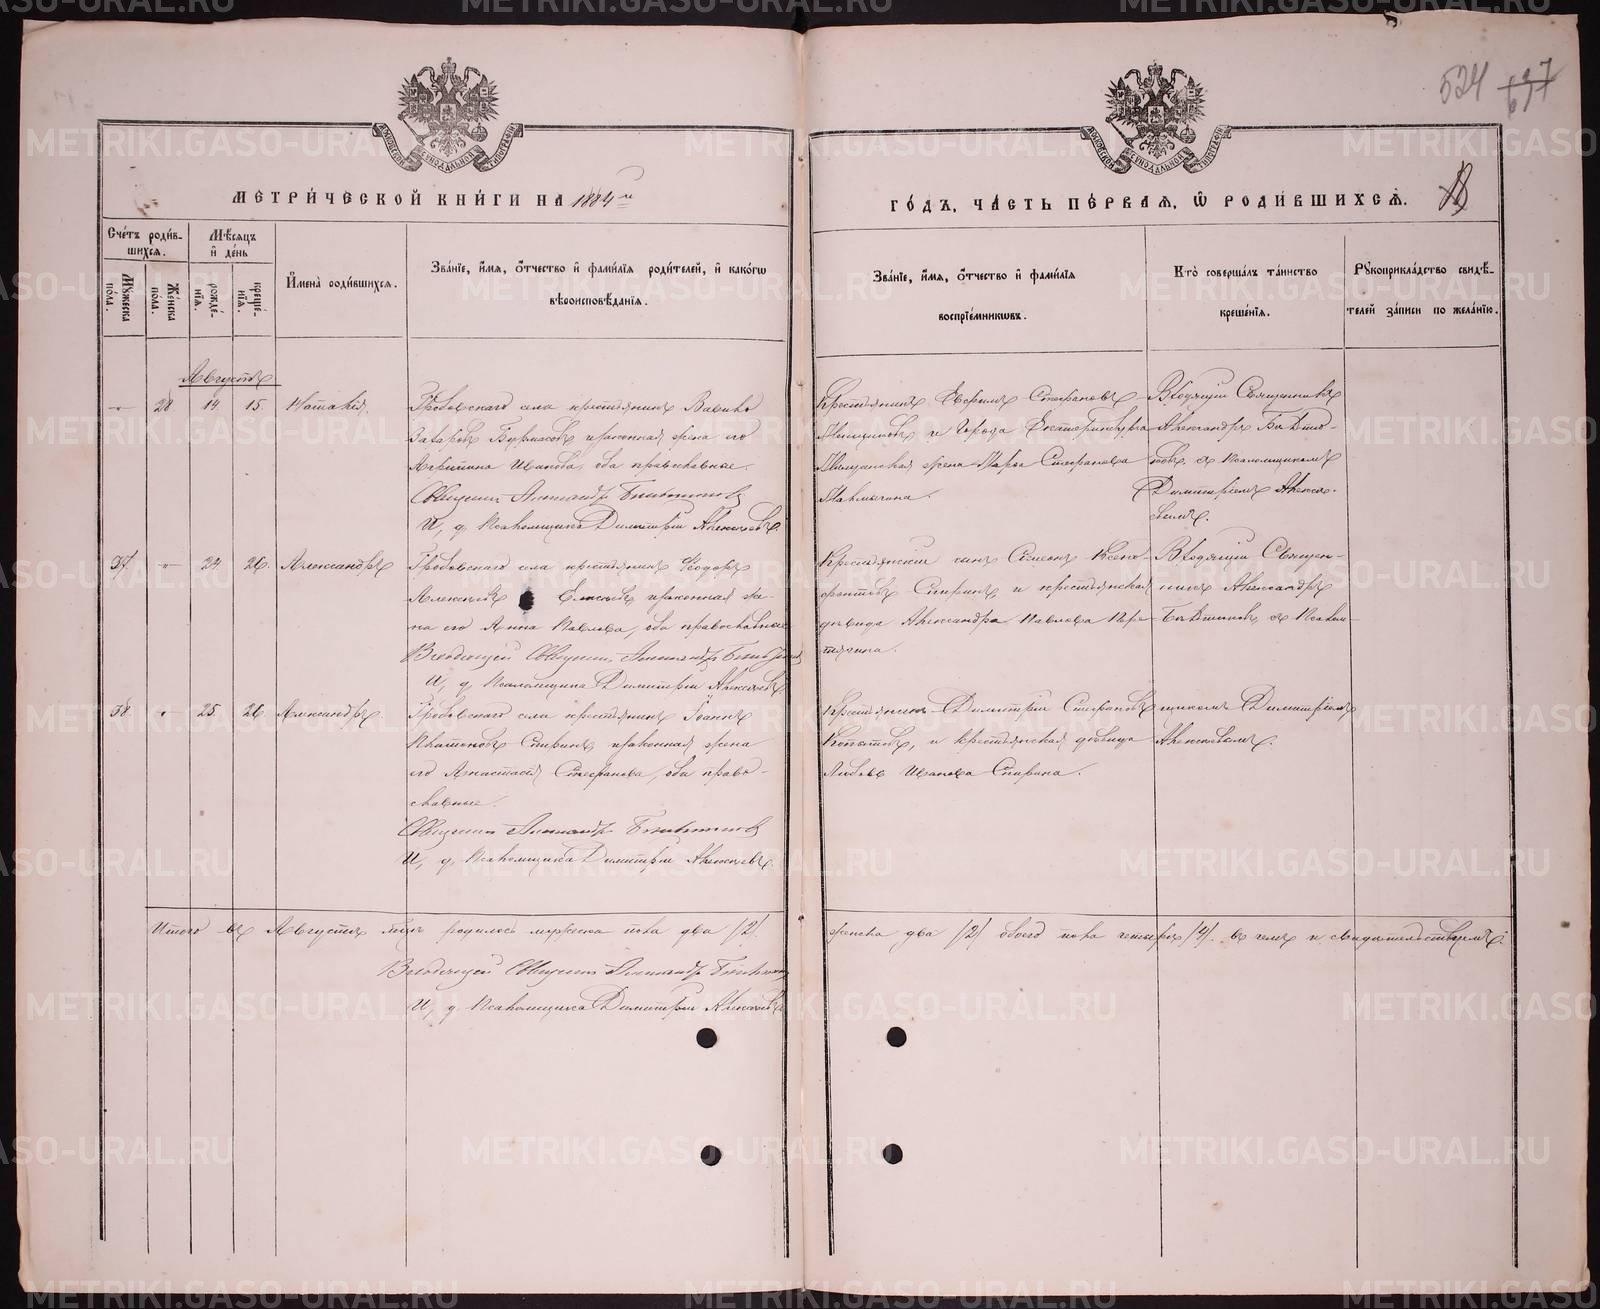 524 637
МОСКОВСКОЙ СѴНОДАЛЬНОЙ ТИПОГРАФІИ
МОСКОВСКОЙ СѴНОДАЛЬНОЙ ТИПОГРАФІИ
МЕТРИ́ЧЕСКОЙ КНИ́ГИ НА 1884 й
ГО́ДЪ, ЧА́СТЬ ПЕ́РВАЯ, Ѡ РОДИ́ВШИХСЯ.
18
Сче́тъ роди́в-
шихся.
Му́жеска
по́ла.
Же́нска
по́ла.
Мѣ́сяцъ
и҆ де́нь
рожде́-
нїя.
креще́-
нїя.
И҆мена̀ роди́вшихся.
Зва́нїе, и҆́мя, ѻ҆́тчество и҆ фами́лїя роди́телей, и҆ како́гѡ
вѣроисповѣ́данїя.
Зва́нїе, и҆́мя, ѻ҆́тчество и҆ фами́лїя
воспрїе́мникѡвъ.
Кто̀ соверша́лъ та́инство
креще́нїя.
Рꙋкоприкла́дство свидѣ́-
телей за́писи по жела́нїю.
Августъ
28 14. 15. Наталія.
Гробовскаго села крестьянинъ Вавило
Захаровъ и законная жена его
Агрипина Иванова, оба православные.
Священникъ Александръ
И, д. Псаломщика Димитрій Алексѣевъ.
Крестьянинъ Ефремъ Стефановъ
и города Екатеринбурга
жена Марѳа Стефанова
Входящій Священникъ
Александръ
съ Псаломщикомъ
Димитріемъ Алексѣ-
евымъ.
37. 24. 26. Александръ
Гробовскаго села крестьянинъ Ѳеодоръ
Алексѣевъ и законная же-
на его Анна Павлова, оба православные
Входящій Священникъ Александръ
И, д. Псаломщика Димитрій Алексѣевъ
Крестьянскій сынъ Ксено-
фонтовъ Спиринъ и крестьянская
дѣвица Александра Павлова
Входящій Священ-
никъ Александръ
съ Псалом-
38. 25. 26. Александръ.
Гробовскаго села крестьянинъ Іоаннъ
Платоновъ Спиринъ, и законная жена
его Анастасія Стефанова, оба право-
славные.
Священникъ Александръ
И, д. Псаломщика Димитрій Алексѣевъ.
Крестьянинъ Димитрій Стефановъ
и крестьянская дѣвица
Любовь Иванова Спирина.
щикомъ Димитріемъ
Алексѣевымъ.
Итого въ Августѣ мѣсяцѣ родилось мужска пола два /2/
женска два /2/ обоего пола четыре /4/. въ чемъ и свидѣтельствуемъ.
Входящій Священникъ Александръ
И, д. Псаломщика Димитрій Алексѣевъ
METRIKI.GASO-URAL.RU